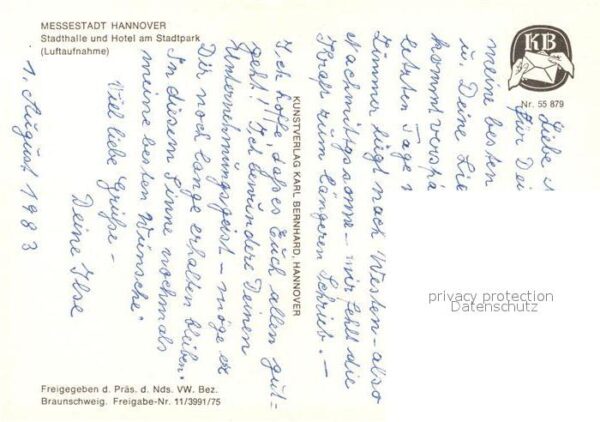 MESSESTADT HANNOVER
Stadthalle und Hotel am Stadtpark
(Luftaufnahme)
KB
Nr. 55 879
Liebe
für Dei
meine besten
u. Deine Lie
kommt verspä
letzten Tage
Zimmer liegt nach Westen – also
Nachmittgssonne – mir fehlt die
Kraft zum längeren Schrieb. –
Ich hoffe, dass es Euch allen gut-
geht! Ich bewundere Deinen
Unternehmungsgeist – möge er
Dir noch lange erhalten bleiben.
In diesem Sinne nochmals
meine besten Wünsche
Viel liebe Grüße –
Deine Ilse
1. August 1983
KUNSTVERLAG KARL BERNHARD, HANNOVER
privacy protection
Datenschutz
Freigegeben d. Präs. d. Nds. VW. Bez.
Braunschweig. Freigabe-Nr. 11/3991/75